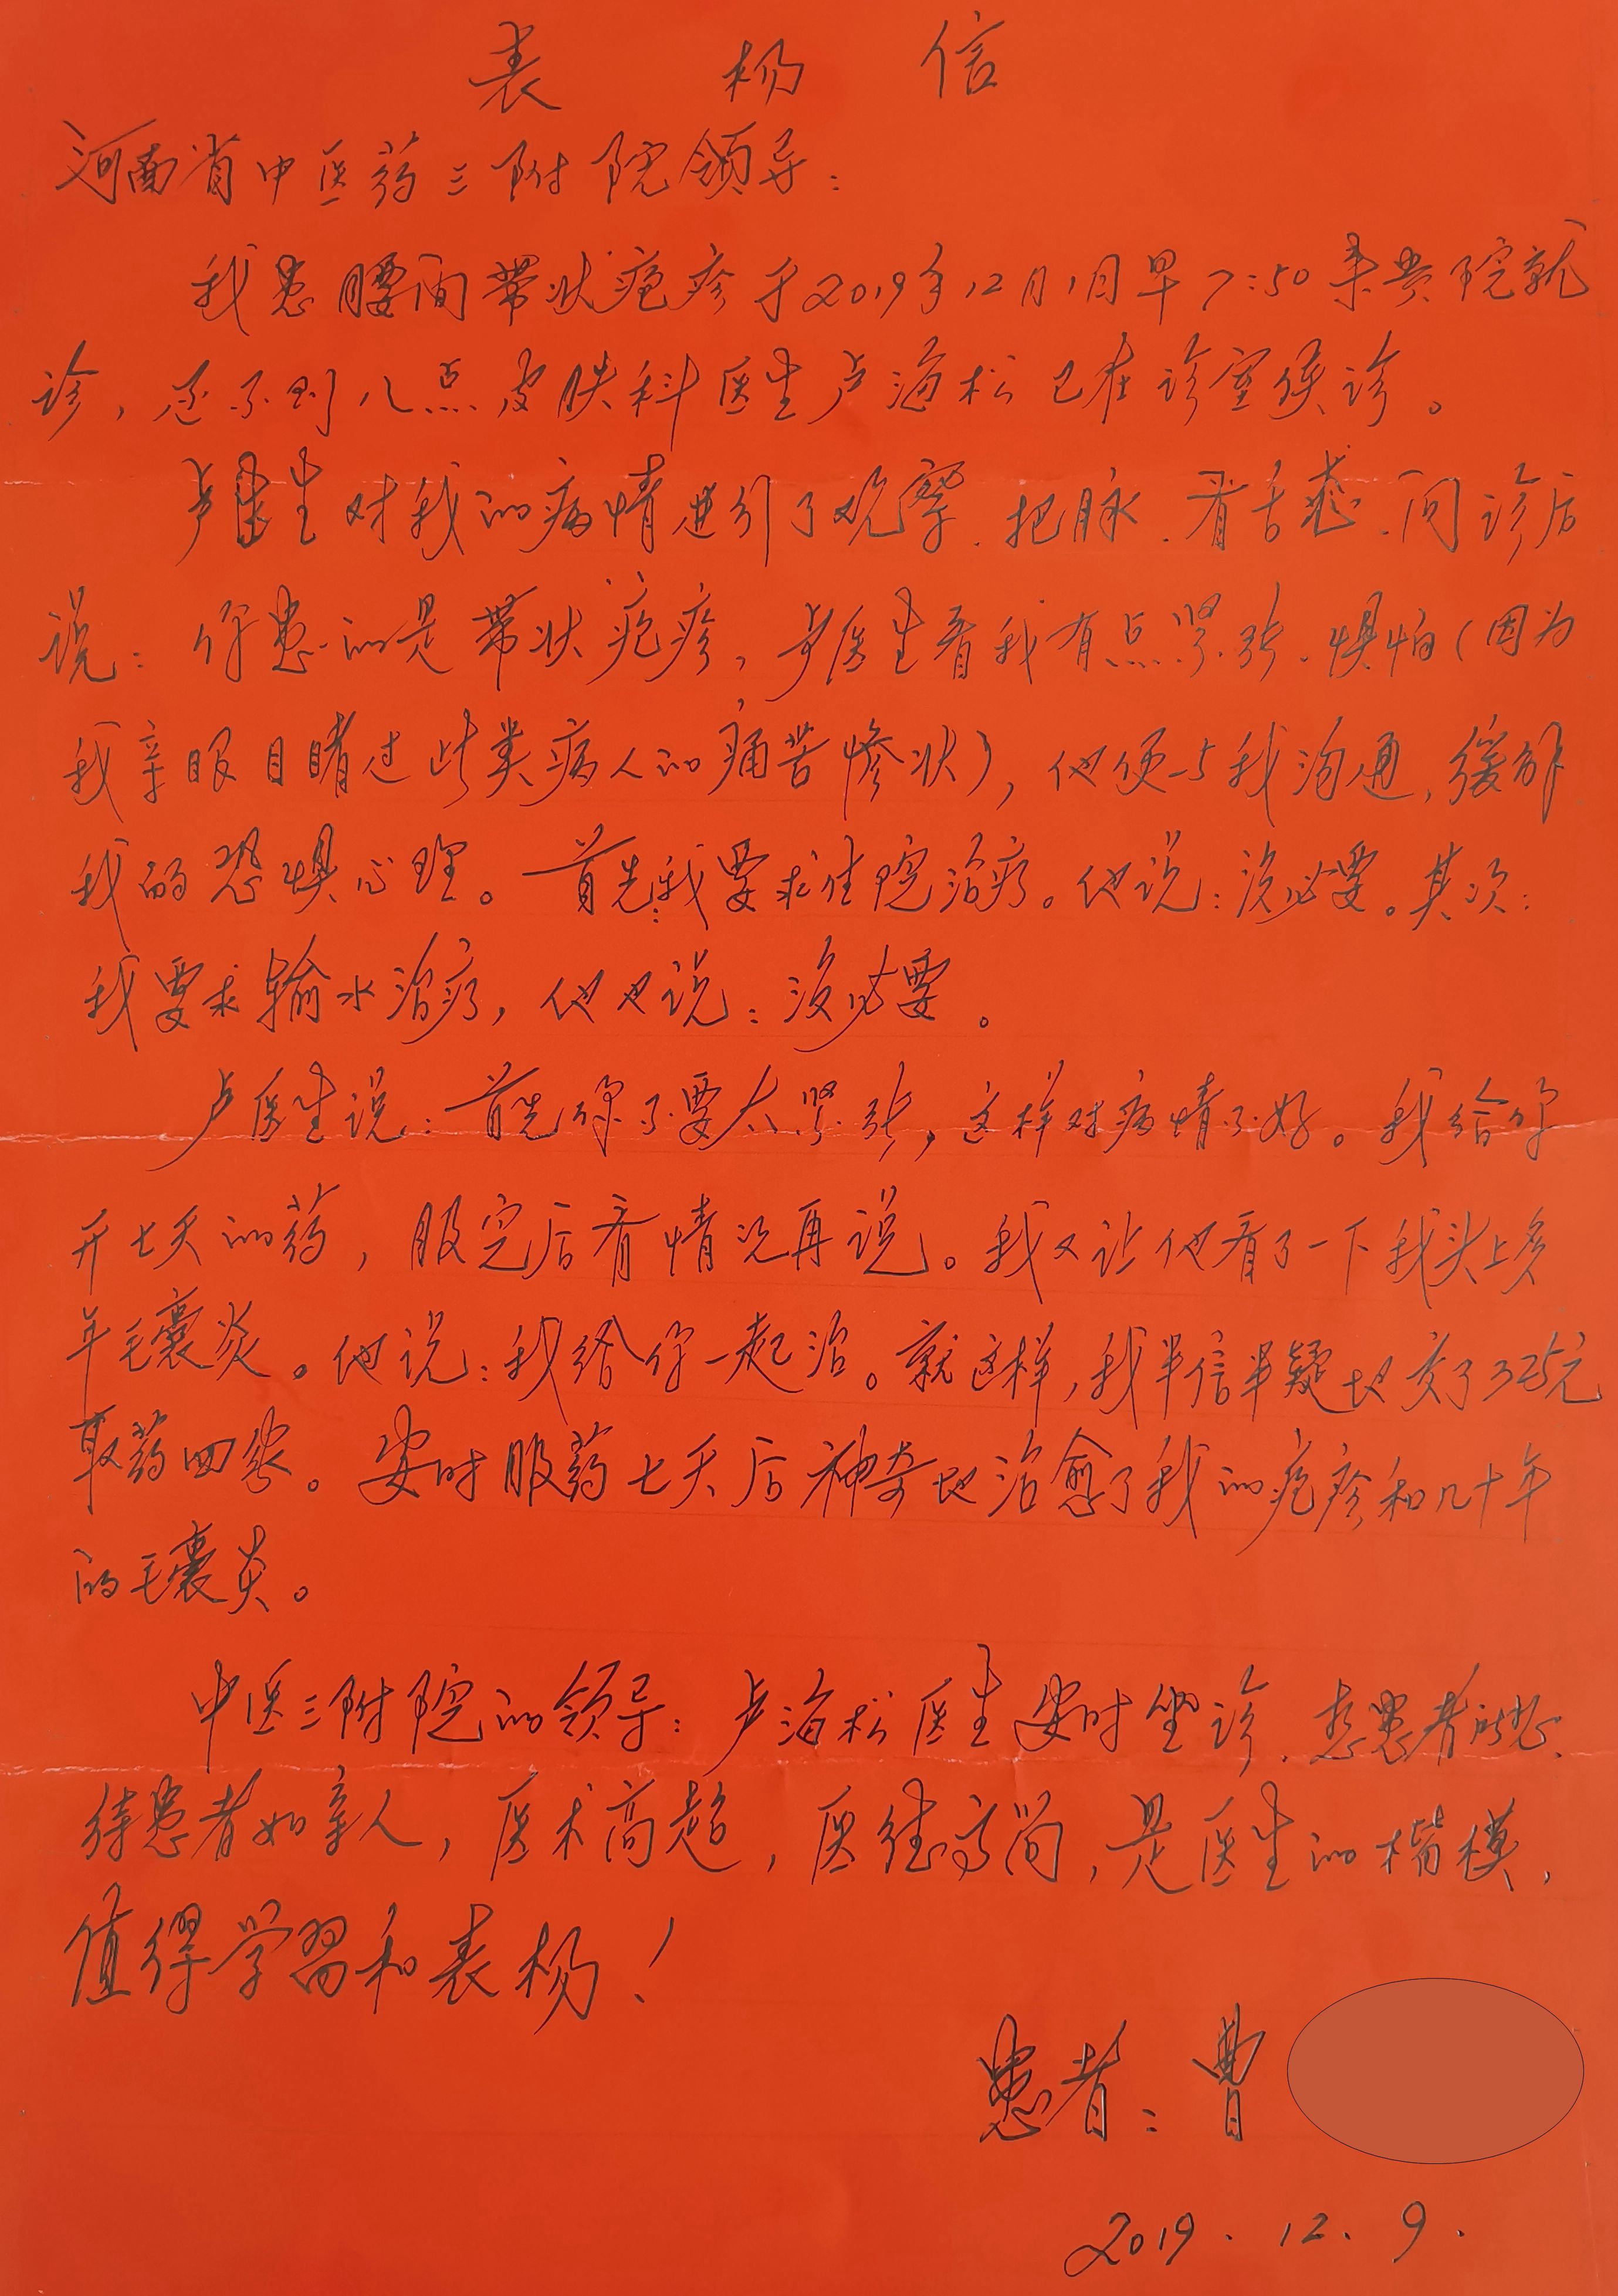 表杨信
河南省中医药三附院领导：
我患腰间带状疱疹于2019年12月1日早7:50来贵院就
诊，还不到八点皮肤科医生卢海松已在诊室候诊。
卢医生对我的病情进引了观察、把脉、看舌苔、问诊后
说：你患的是带状疱疹，卢医生看我有点紧张、惧怕（因为
我亲眼目睹过此类病人的痛苦惨状），他便与我沟通，缓解
我的恐惧心理。首先：我要求住院治疗。他说：没必要。其次：
我要求输水治疗，他也说：没必要。
卢医生说：首先你不要太紧张，这样对病情不好。我给你
开七天的药，服完后看情况再说。我又让他看了一下我头上多
年毛囊炎。他说：我给你一起治。就这样，我半信半疑地交了325元
取药四袋。按时服药七天后神奇地治愈了我的疱疹和几十年
的毛囊炎。
中医三附院的领导：卢海松医生按时坐诊、想患者所想、
待患者如亲人，医术高超，医德高尚，是医生的楷模，
值得学习和表杨！
患者：曹
2019.12.9.